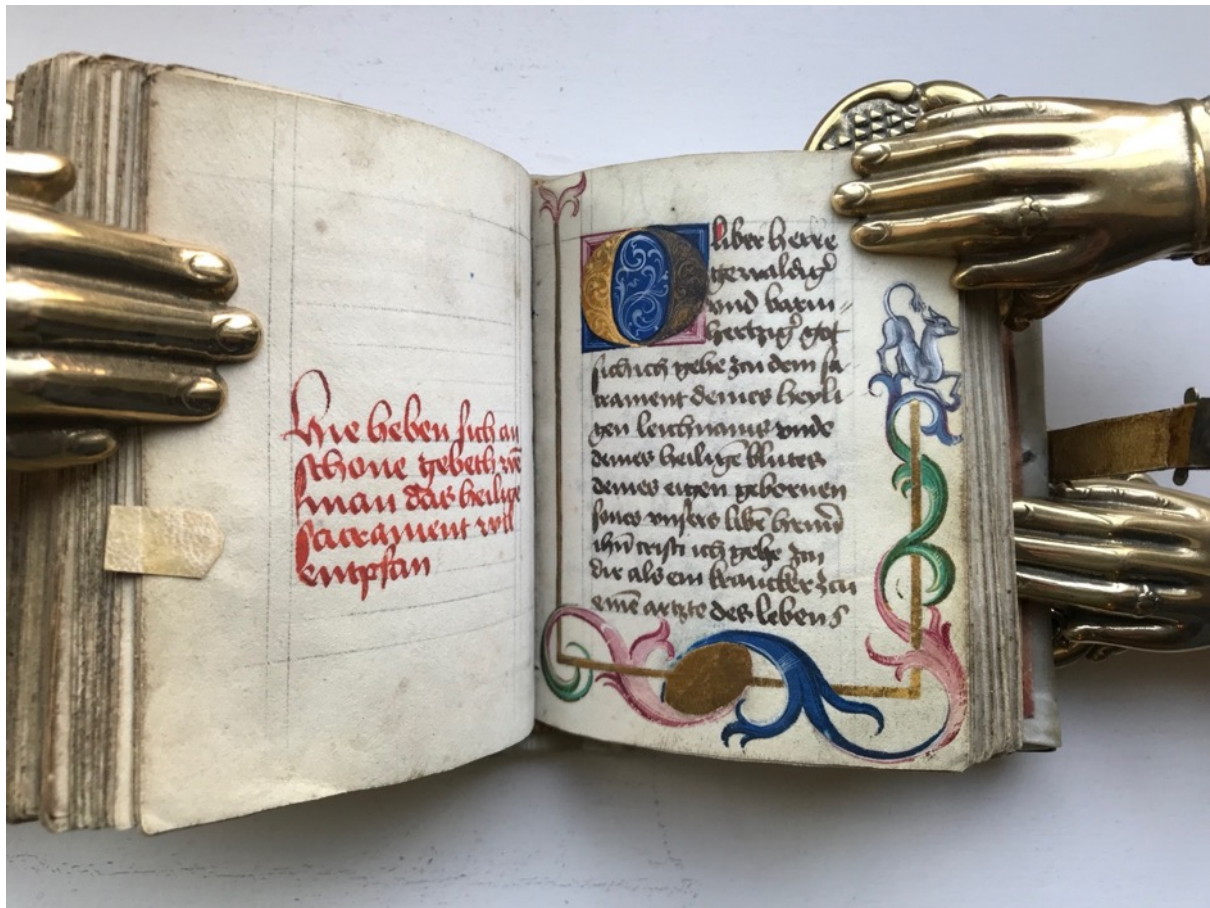 Hie heben sich an
schone gebeth wē
man das heilige
sacrament wil
entpfan
O liber herre
gewaldigˀ
vnd barm⸗
hertzigˀ got
sich ich gehe zcu dem sa
crament deines heyli
gen leichnams vnde
deines heiligē blutes
deines eigen gebornen
sones vnsers libē herrē
ihū cristi ich gehe zcu
dir als ein krancker zcu
einē artzte des lebens